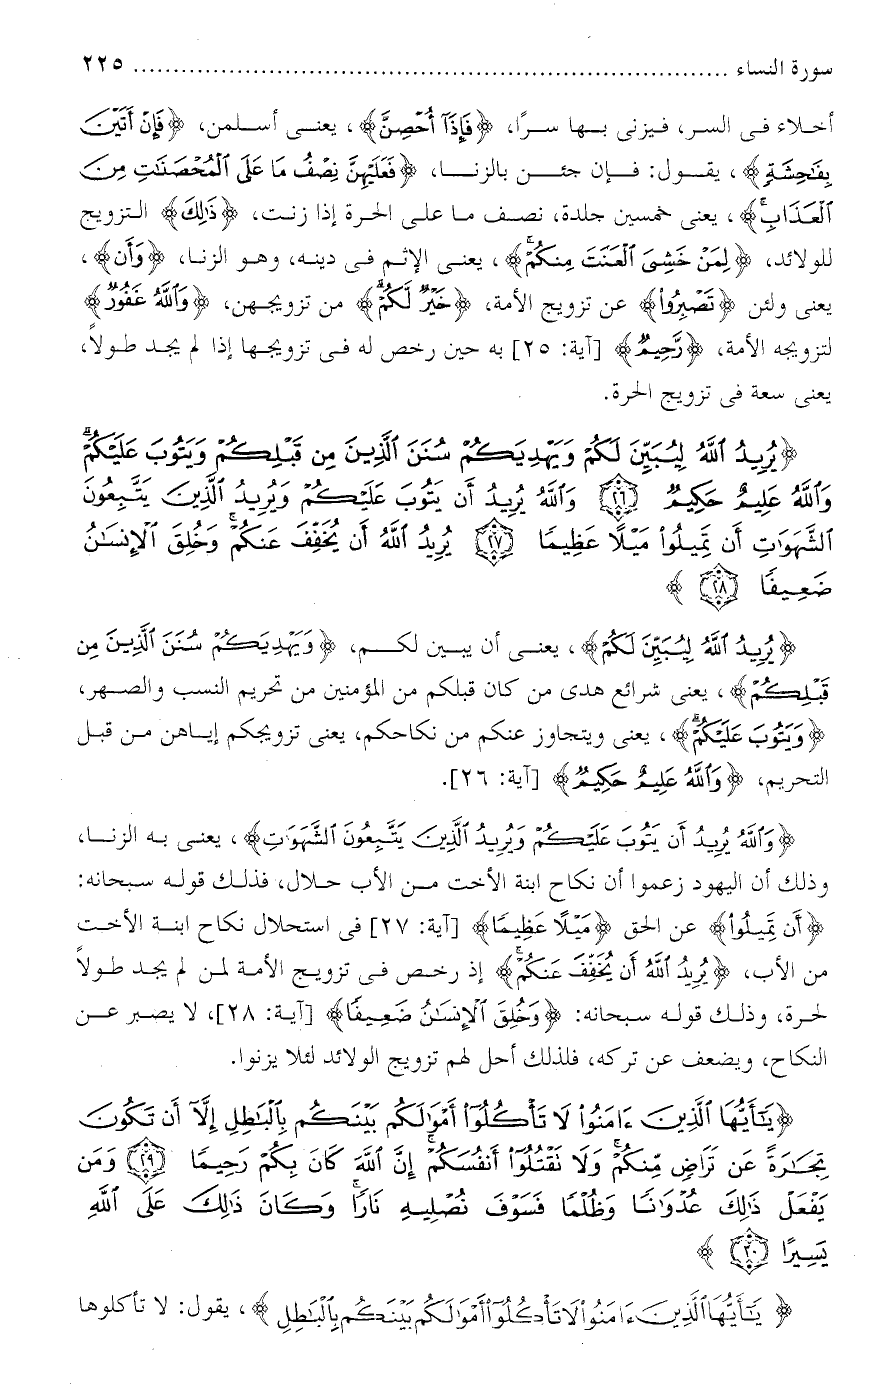 سورة النساء ........................................................................ ٢٢٥
أخلاء فى السر، فيزنى بها سرًا، ﴿فَإِذَآ أُحْصِنَّ﴾، يعنى أسلمن، ﴿فَإِنْ أَتَيْنَ
بِفَٰحِشَةٍ﴾، يقول: فإن جئن بالزنا، ﴿فَعَلَيْهِنَّ نِصْفُ مَا عَلَى ٱلْمُحْصَنَٰتِ مِنَ
ٱلْعَذَابِ ۚ﴾، يعنى خمسين جلدة، نصف ما على الحرة إذا زنت، ﴿ذَٰلِكَ﴾ التزويج
للولائد، ﴿لِمَنْ خَشِىَ ٱلْعَنَتَ مِنكُمْ ۚ﴾، يعنى الإثم فى دينه، وهو الزنا، ﴿وَأَن﴾،
يعنى ولئن ﴿تَصْبِرُوا۟﴾ عن تزويج الأمة، ﴿خَيْرٌ لَّكُمْ ۗ﴾ من تزويجهن، ﴿وَٱللَّهُ غَفُورٌ﴾
لتزويجه الأمة، ﴿رَّحِيمٌ﴾ [آية: ٢٥] به حين رخص له فى تزويجها إذا لم يجد طولاً،
يعنى سعة فى تزويج الحرة.
﴿يُرِيدُ ٱللَّهُ لِيُبَيِّنَ لَكُمْ وَيَهْدِيَكُمْ سُنَنَ ٱلَّذِينَ مِن قَبْلِكُمْ وَيَتُوبَ عَلَيْكُمْ ۗ
وَٱللَّهُ عَلِيمٌ حَكِيمٌ ۝٢٦ وَٱللَّهُ يُرِيدُ أَن يَتُوبَ عَلَيْكُمْ وَيُرِيدُ ٱلَّذِينَ يَتَّبِعُونَ
ٱلشَّهَوَٰتِ أَن تَمِيلُوا۟ مَيْلًا عَظِيمًا ۝٢٧ يُرِيدُ ٱللَّهُ أَن يُخَفِّفَ عَنكُمْ ۚ وَخُلِقَ ٱلْإِنسَٰنُ
ضَعِيفًا ۝٢٨ ﴾
﴿يُرِيدُ ٱللَّهُ لِيُبَيِّنَ لَكُمْ﴾، يعنى أن يبين لكم، ﴿وَيَهْدِيَكُمْ سُنَنَ ٱلَّذِينَ مِن
قَبْلِكُمْ﴾، يعنى شرائع هدى من كان قبلكم من المؤمنين من تحريم النسب والصهر،
﴿وَيَتُوبَ عَلَيْكُمْ ۗ﴾، يعنى ويتجاوز عنكم من نكاحكم، يعنى تزويجكم إياهن من قبل
التحريم، ﴿وَٱللَّهُ عَلِيمٌ حَكِيمٌ﴾ [آية: ٢٦].
﴿وَٱللَّهُ يُرِيدُ أَن يَتُوبَ عَلَيْكُمْ وَيُرِيدُ ٱلَّذِينَ يَتَّبِعُونَ ٱلشَّهَوَٰتِ﴾، يعنى به الزنا،
وذلك أن اليهود زعموا أن نكاح ابنة الأخت من الأب حلال، فذلك قوله سبحانه:
﴿أَن تَمِيلُوا۟﴾ عن الحق ﴿مَيْلًا عَظِيمًا﴾ [آية: ٢٧] فى استحلال نكاح ابنة الأخت
من الأب، ﴿يُرِيدُ ٱللَّهُ أَن يُخَفِّفَ عَنكُمْ ۚ﴾ إذ رخص فى تزويج الأمة لمن لم يجد طولاً
لحرة، وذلك قوله سبحانه: ﴿وَخُلِقَ ٱلْإِنسَٰنُ ضَعِيفًا﴾ [آية: ٢٨]، لا يصبر عن
النكاح، ويضعف عن تركه، فلذلك أحل لهم تزويج الولائد لئلا يزنوا.
﴿يَٰٓأَيُّهَا ٱلَّذِينَ ءَامَنُوا۟ لَا تَأْكُلُوٓا۟ أَمْوَٰلَكُم بَيْنَكُم بِٱلْبَٰطِلِ إِلَّآ أَن تَكُونَ
تِجَٰرَةً عَن تَرَاضٍ مِّنكُمْ ۚ وَلَا تَقْتُلُوٓا۟ أَنفُسَكُمْ ۚ إِنَّ ٱللَّهَ كَانَ بِكُمْ رَحِيمًا ۝٢٩ وَمَن
يَفْعَلْ ذَٰلِكَ عُدْوَٰنًا وَظُلْمًا فَسَوْفَ نُصْلِيهِ نَارًا ۚ وَكَانَ ذَٰلِكَ عَلَى ٱللَّهِ
يَسِيرًا ۝٣٠ ﴾
﴿ يَٰٓأَيُّهَا ٱلَّذِينَ ءَامَنُوا۟ لَا تَأْكُلُوٓا۟ أَمْوَٰلَكُم بَيْنَكُم بِٱلْبَٰطِلِ ﴾، يقول: لا تأكلوها